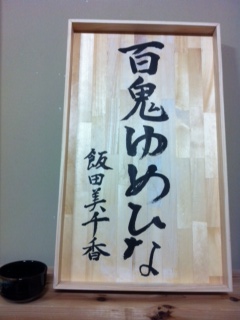 百鬼ゆめひな
飯田美千香